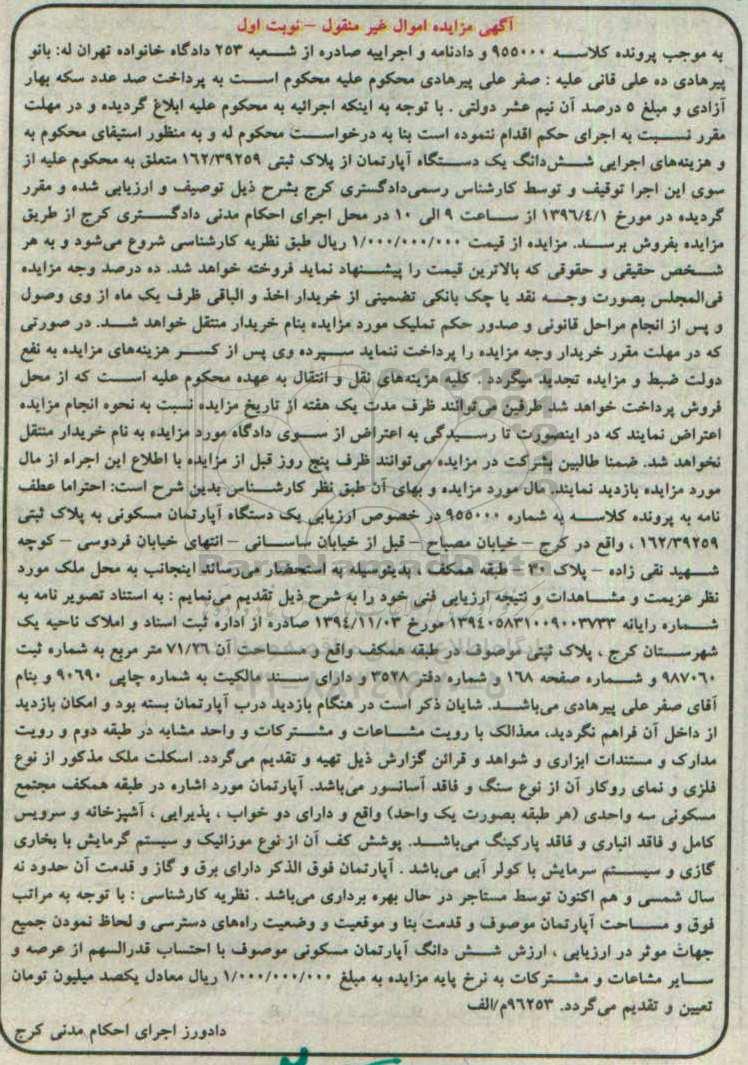 آگهی مزایده اموال غیر منقول – نوبت اول
به موجب پرونده کلاسه ۹۵۵۰۰۰ و دادنامه و اجراییه صادره از شعبه ۲۵۳ دادگاه خانواده تهران له: بانو
پیرهادی ده علی قانی علیه : صفر علی پیرهادی محکوم علیه محکوم است به پرداخت صد عدد سکه بهار
آزادی و مبلغ ۵ درصد آن نیم عشر دولتی . با توجه به اینکه اجرائیه به محکوم علیه ابلاغ گردیده و در مهلت
مقرر نسبت به اجرای حکم اقدام ننموده است بنا به درخواست محکوم له و به منظور استیفای محکوم به
و هزینه‌های اجرایی شش‌دانگ یک دستگاه آپارتمان از پلاک ثبتی ۱۶۲/۳۹۲۵۹ متعلق به محکوم علیه از
سوی این اجرا توقیف و توسط کارشناس رسمی‌دادگستری کرج بشرح ذیل توصیف و ارزیابی شده و مقرر
گردیده در مورخ ۱۳۹۶/٤/۱ از ساعت ۹ الی ۱۰ در محل اجرای احکام مدنی دادگستری کرج از طریق
مزایده بفروش برسد. مزایده از قیمت ۱/۰۰۰/۰۰۰/۰۰۰ ریال طبق نظریه کارشناسی شروع می‌شود و به هر
شخص حقیقی و حقوقی که بالاترین قیمت را پیشنهاد نماید فروخته خواهد شد. ده درصد وجه مزایده
فی‌المجلس بصورت وجه نقد یا چک بانکی تضمینی از خریدار اخذ و الباقی ظرف یک ماه از وی وصول
و پس از انجام مراحل قانونی و صدور حکم تملیک مورد مزایده بنام خریدار منتقل خواهد شد. در صورتی
که در مهلت مقرر خریدار وجه مزایده را پرداخت ننماید سپرده وی پس از کسر هزینه‌های مزایده به نفع
دولت ضبط و مزایده تجدید میگردد . کلیه هزینه‌های نقل و انتقال به عهده محکوم علیه است که از محل
فروش پرداخت خواهد شد طرفین می‌توانند ظرف مدت یک هفته از تاریخ مزایده نسبت به نحوه انجام مزایده
اعتراض نمایند که در اینصورت تا رسیدگی به اعتراض از سوی دادگاه مورد مزایده به نام خریدار منتقل
نخواهد شد. ضمنا طالبین بشرکت در مزایده می‌توانند ظرف پنج روز قبل از مزایده با اطلاع این اجراء از مال
مورد مزایده بازدید نمایند. مال مورد مزایده و بهای آن طبق نظر کارشناس بدین شرح است: احتراما عطف
نامه به پرونده کلاسه به شماره ۹۵۵۰۰۰ در خصوص ارزیابی یک دستگاه آپارتمان مسکونی به پلاک ثبتی
۱۶۲/۳۹۲۵۹ ، واقع در کرج – خیابان مصباح – قبل از خیابان ساسانی – انتهای خیابان فردوسی – کوچه
شهید نقی زاده – پلاک ۳۰ – طبقه همکف ، بدینوسیله به استحضار می‌رساند اینجانب به محل ملک مورد
نظر عزیمت و مشاهدات و نتیجه ارزیابی فنی خود را به شرح ذیل تقدیم می‌نمایم : به استناد تصویر نامه به
شماره رایانه ۱۳۹٤۰۵۸۳۱۰۰۹۰۰۳۷۳۳ مورخ ۱۳۹٤/۱۱/۰۳ صادره از اداره ثبت اسناد و املاک ناحیه یک
شهرستان کرج ، پلاک ثبتی موصوف در طبقه همکف واقع و مساحت آن ۷۱/۲۶ متر مربع به شماره ثبت
۹۸۷۰۶۰ و شماره صفحه ۱۶۸ و شماره دفتر ۳۵۲۸ و دارای سند مالکیت به شماره چاپی ۹۰۶۹۰ و بنام
آقای صفر علی پیرهادی می‌باشد. شایان ذکر است در هنگام بازدید درب آپارتمان بسته بود و امکان بازدید
از داخل آن فراهم نگردید، معذالک با رویت مشاعات و مشترکات و واحد مشابه در طبقه دوم و رویت
مدارک و مستندات ابزاری و شواهد و قرائن گزارش ذیل تهیه و تقدیم می‌گردد. اسکلت ملک مذکور از نوع
فلزی و نمای روکار آن از نوع سنگ و فاقد آسانسور می‌باشد. آپارتمان مورد اشاره در طبقه همکف مجتمع
مسکونی سه واحدی (هر طبقه بصورت یک واحد) واقع و دارای دو خواب ، پذیرایی ، آشپزخانه و سرویس
کامل و فاقد انباری و فاقد پارکینگ می‌باشد. پوشش کف آن از نوع موزائیک و سیستم گرمایش با بخاری
گازی و سیستم سرمایش با کولر آبی می‌باشد . آپارتمان فوق الذکر دارای برق و گاز و قدمت آن حدود نه
سال شمسی و هم اکنون توسط مستاجر در حال بهره برداری می‌باشد . نظریه کارشناسی : با توجه به مراتب
فوق و مساحت آپارتمان موصوف و قدمت بنا و موقعیت و وضعیت راه‌های دسترسی و لحاظ نمودن جمیع
جهات موثر در ارزیابی ، ارزش شش دانگ آپارتمان مسکونی موصوف با احتساب قدرالسهم از عرصه و
سایر مشاعات و مشترکات به نرخ پایه مزایده به مبلغ ۱/۰۰۰/۰۰۰/۰۰۰ ریال معادل یکصد میلیون تومان
تعیین و تقدیم می‌گردد. ۹۶۲۵۳م/الف
دادورز اجرای احکام مدنی کرج